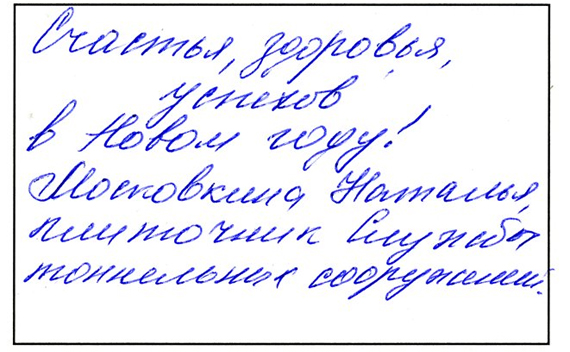 Счастья, здоровья,
успехов
в Новом году!
Московкина Наталья,
плиточник Службы
тоннельных сооружений.